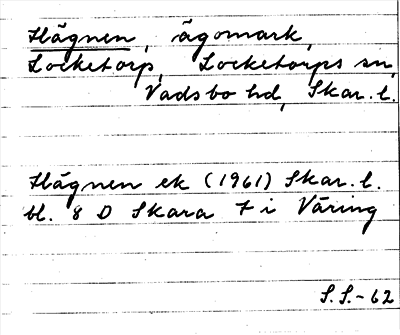 Hägnen, ägomark,
Locketorp, Locketorps sn,
Vadsbo hd, Skar. l.
Hägnen ek (1961) Skar. l.
bl. 8 D Skara 7 i Väring
S.S.-62